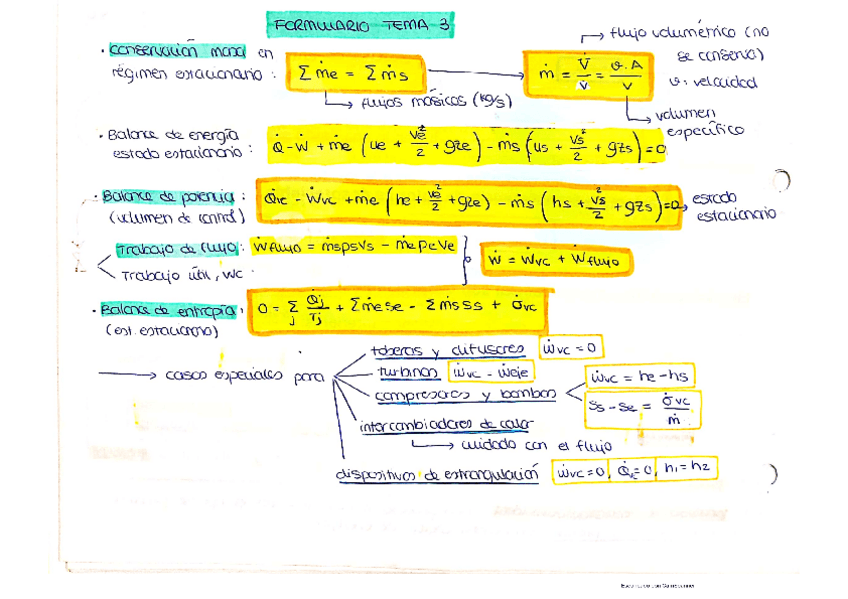 FORMULARIO TEMA 3
· Conservación masa en régimen estacionario :
Σ ṁe = Σ ṁs
→ flujos másicos (kg/s)
ṁ = V̇/v = ϑ·A/v
→ flujo volumétrico (no se conserva)
ϑ: velocidad
→ volumen específico
· Balance de energía estado estacionario :
Q̇ - Ẇ + ṁe (ue + ve²/2 + gze) - ṁs (us + vs²/2 + gzs) = 0
· Balance de potencia :
(volumen de control)
Q̇vc - Ẇvc + ṁe (he + ve²/2 + gze) - ṁs (hs + vs²/2 + gzs) = 0 → estado estacionario
Trabajo de flujo : Ẇflujo = ṁspsvs - ṁepeve
Trabajo útil, Wc
Ẇ = Ẇvc + Ẇflujo
· Balance de entropía :
(est. estacionario)
0 = Σj Q̇j/Tj + Σṁese - Σṁsss + σ̇vc
→ casos especiales para
toberas y difusores ẇvc = 0
turbinas ẇvc - ẇeje
compresores y bombas
ẇvc = he - hs
ss - se = σ̇vc/ṁ
intercambiadores de calor
→ cuidado con el flujo
dispositivos de estrangulación ẇvc = 0, Q̇vc = 0, h1 = h2
Escaneado con CamScanner